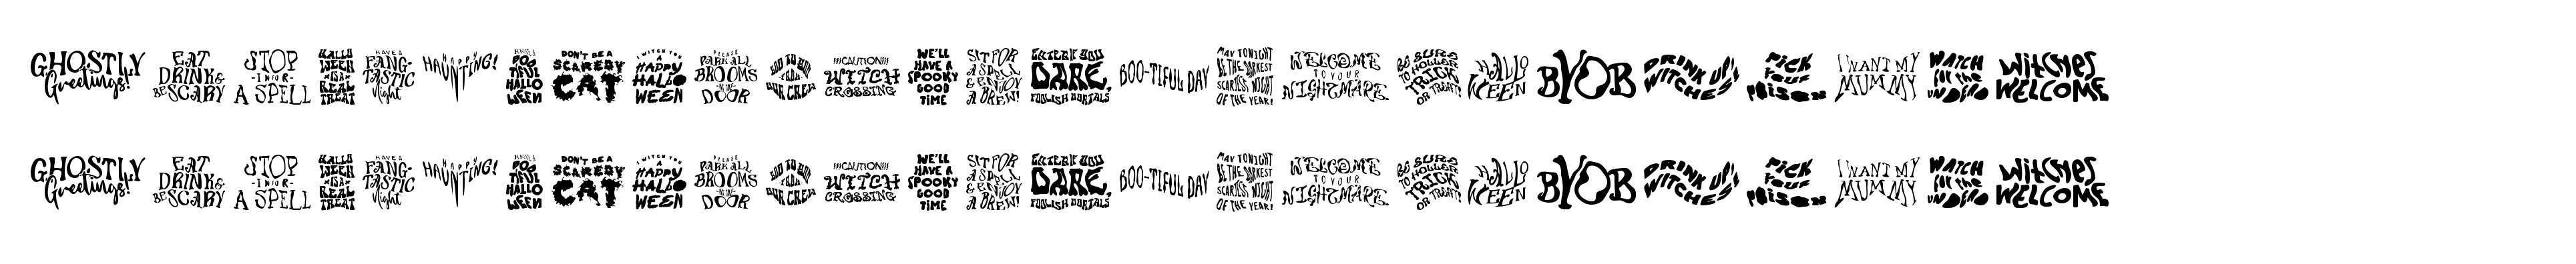 GHOSTLY Greetings! EAT DRINK & BE SCARY STOP -IN OR- A SPELL HALLOWEEN IS A REAL TREAT HAVE A FANG-TASTIC Night HAPPY HAUNTING! HAVE A BOO TIFUL HALLO WEEN DON'T BE A SCAREDY CAT I WITCH YOU A HAPPY HALLO WEEN PLEASE PARK ALL BROOMS AT THE DOOR BOO TO YOU FROM OUR CREW !!!CAUTION!!! WITCH CROSSING WE'LL HAVE A SPOOKY GOOD TIME SIT FOR A SPELL & ENJOY A BREW! ENTER IF YOU DARE, FOOLISH MORTALS BOO-TIFUL DAY MAY TONIGHT BE THE DARKEST SCARIEST NIGHT OF THE YEAR! WELCOME TO YOUR NIGHTMARE BE SURE TO HOLLER TRICK OR TREAT! HALLO WEEN BYOB DRINK UP! WITCHES PICK YOUR POISON I WANT MY MUMMY WATCH for the UNDEAD WITCHES WELCOME
GHOSTLY Greetings! EAT DRINK & BE SCARY STOP -IN OR- A SPELL HALLOWEEN IS A REAL TREAT HAVE A FANG-TASTIC Night HAPPY HAUNTING! HAVE A BOO TIFUL HALLO WEEN DON'T BE A SCAREDY CAT I WITCH YOU A HAPPY HALLO WEEN PLEASE PARK ALL BROOMS AT THE DOOR BOO TO YOU FROM OUR CREW !!!CAUTION!!! WITCH CROSSING WE'LL HAVE A SPOOKY GOOD TIME SIT FOR A SPELL & ENJOY A BREW! ENTER IF YOU DARE, FOOLISH MORTALS BOO-TIFUL DAY MAY TONIGHT BE THE DARKEST SCARIEST NIGHT OF THE YEAR! WELCOME TO YOUR NIGHTMARE BE SURE TO HOLLER TRICK OR TREAT! HALLO WEEN BYOB DRINK UP! WITCHES PICK YOUR POISON I WANT MY MUMMY WATCH for the UNDEAD WITCHES WELCOME